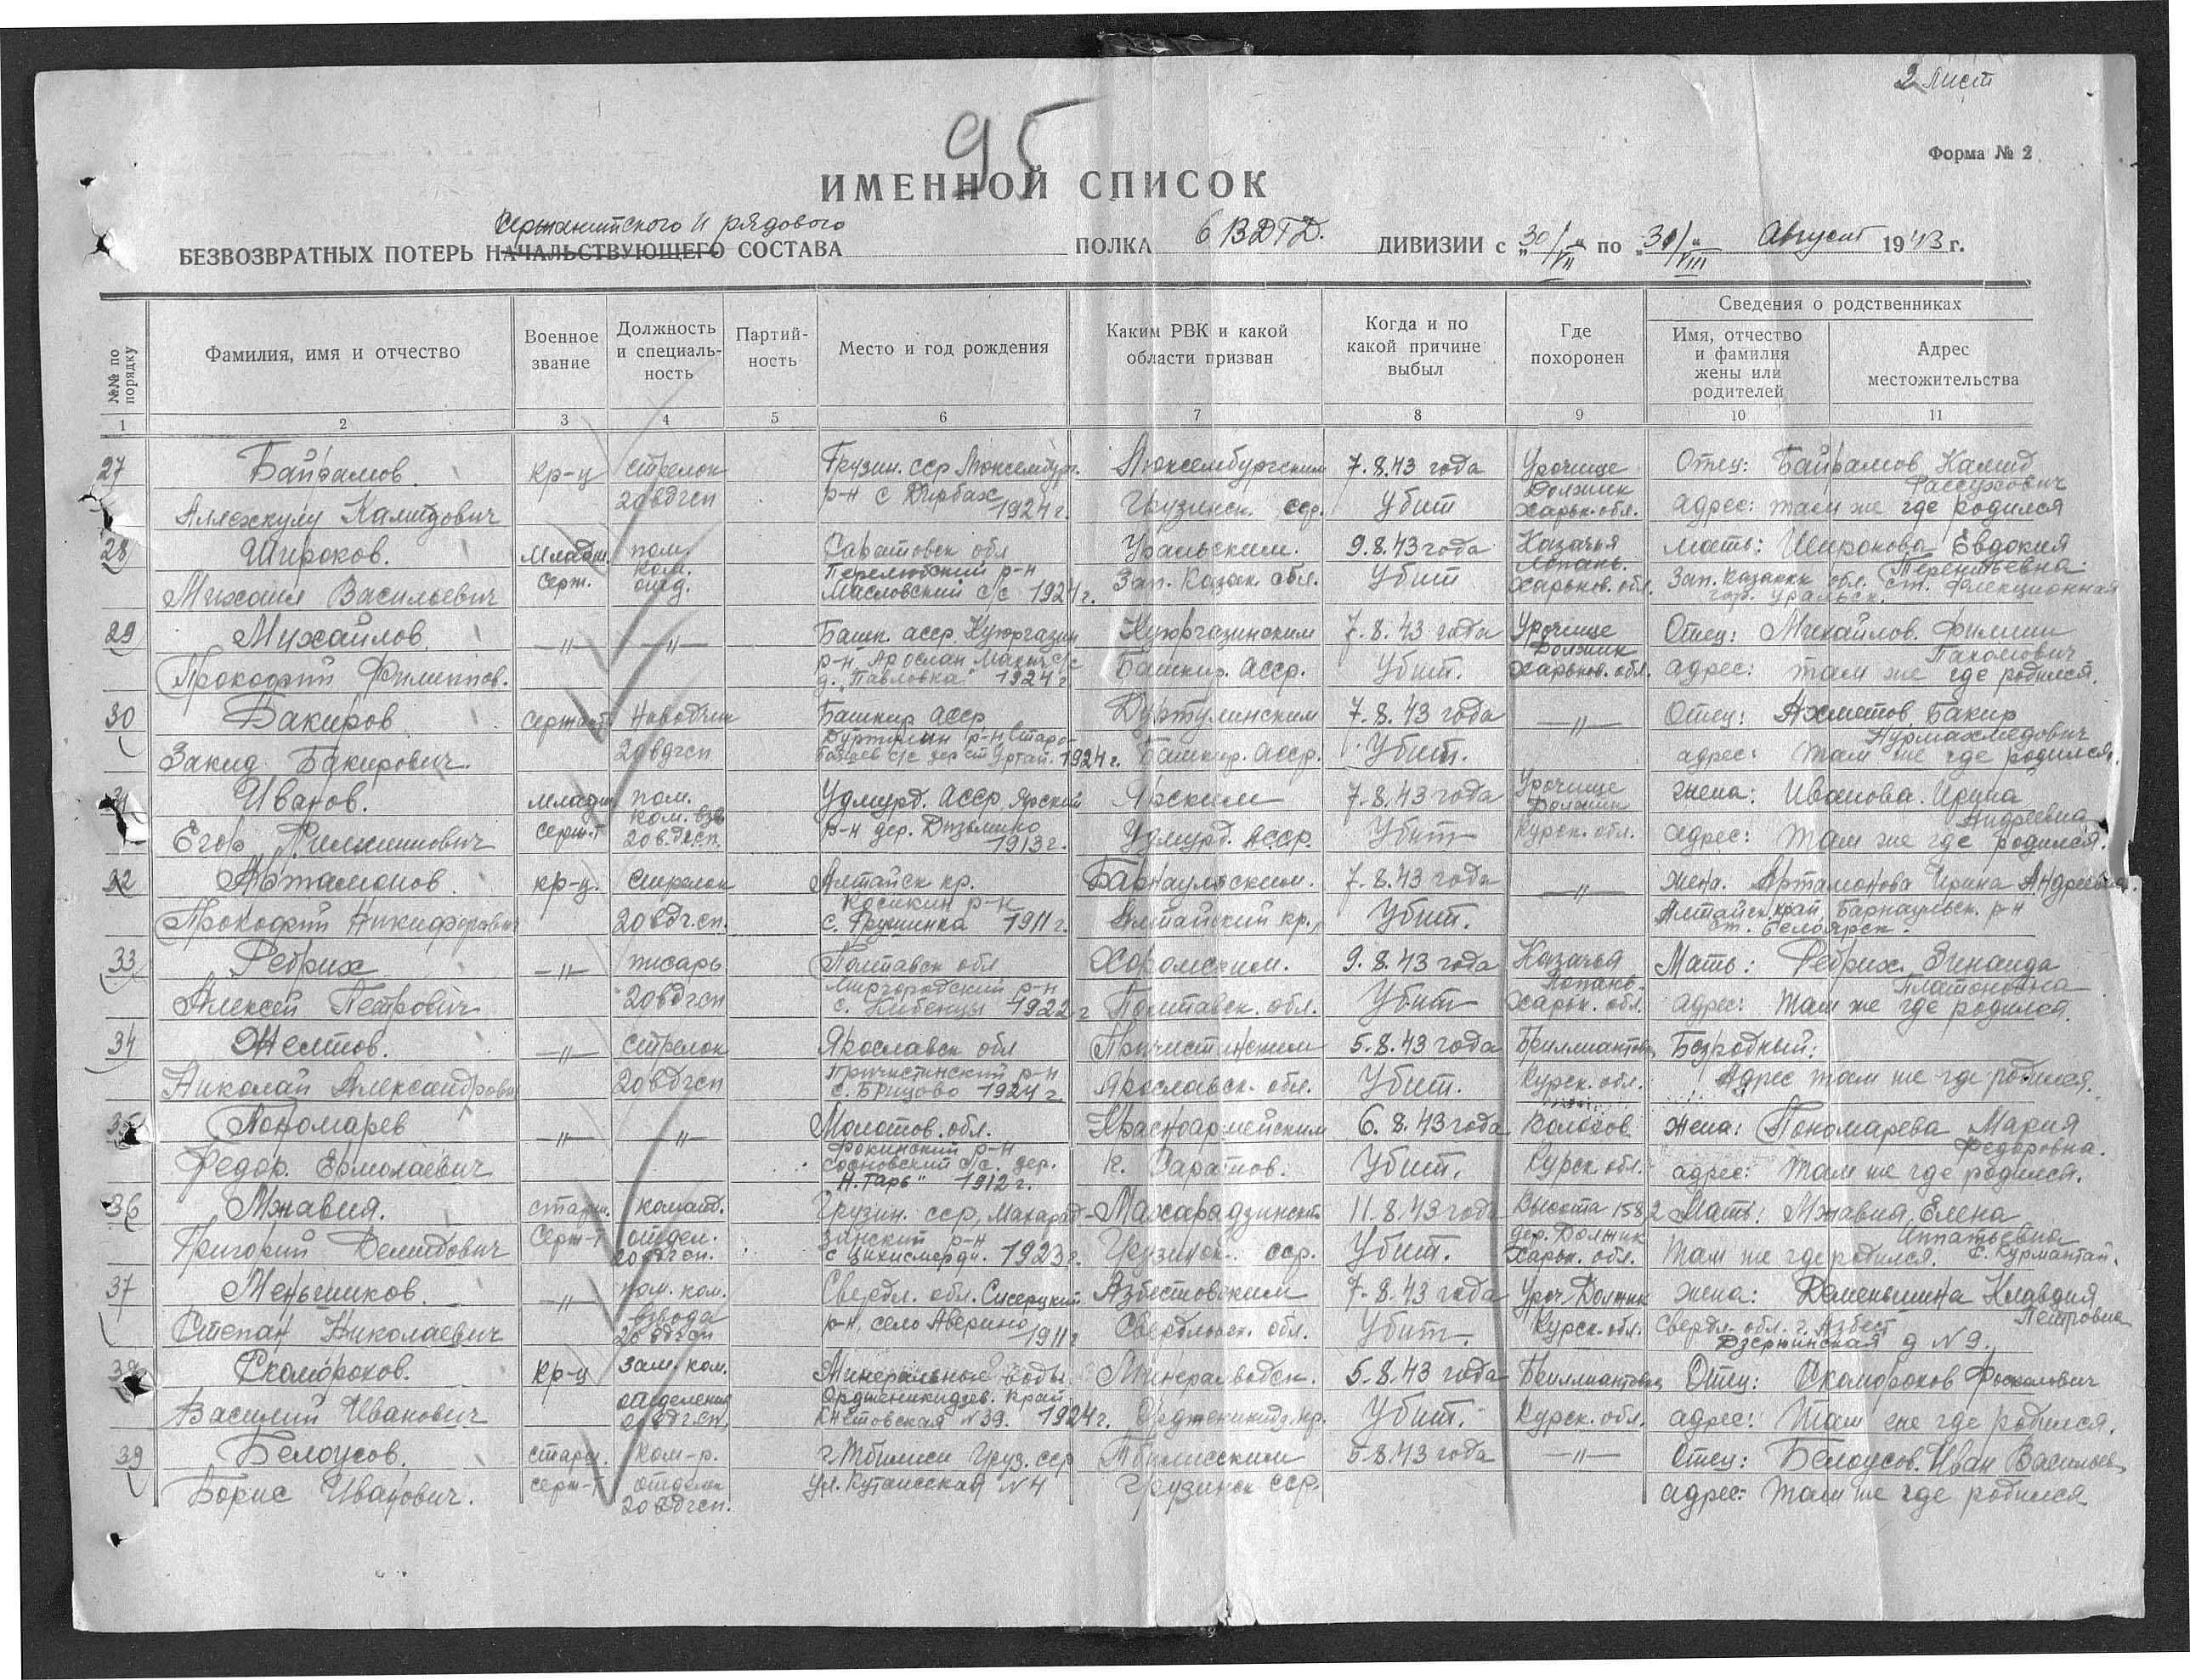 2 лист
95
Форма № 2
ИМЕННОЙ СПИСОК
Сержантского и рядового
БЕЗВОЗВРАТНЫХ ПОТЕРЬ НАЧАЛЬСТВУЮЩЕГО СОСТАВА ПОЛКА 6 ВДГД. ДИВИЗИИ с „30/VII“ по „30/VIII“ Август 1943 г.
№№ по порядку
Фамилия, имя и отчество
Военное звание
Должность и специаль-ность
Партий-ность
Место и год рождения
Каким РВК и какой области призван
Когда и по какой причине выбыл
Где похоронен
Сведения о родственниках
Имя, отчество и фамилия жены или родителей
Адрес местожительства
1 2 3 4 5 6 7 8 9 10 11
27 Байрамов кр-ц стрелок Грузин. сср Люксембург. Люксембургским 7.8.43 года Урочище Отец: Байрамов Калид
Калидович 20вдгсп р-н с 1924 г. Грузинск. сср. Убит Должик Харьк. обл. адрес: там же где родился
28 Широков. Младш. пом. Саратовск обл Уральским. 9.8.43 года Казачья мать: Широкова Евдокия
Михаил Васильевич серт. ком. отд. Перелюбский р-н Масловский с/с 1924 г. Зап. Казах обл. Убит Лопань. Харьков. обл. Терентьевна. Зап. Казахск обл. гор. Уральск. ст.
29 Михайлов. —"— —"— Башк. асср Куюргазин Куюргазинским 7.8.43 года Урочище Отец: Михайлов. Филипп
Прокофий Филиппов. р-н с/с д. "Павловка" 1924 г Башкир. асср. Убит. Должик Харьков. обл. Пахомович адрес: там же где родился.
30 Бакиров Сержант Наводчик Башкир асср Дюртулинским 7.8.43 года —"— Отец: Ахметов. Бакир
Закид Бакирович. 20вдгсп р-н Старо- 1924 г. Башкир. асср. Убит. Нурмахмедович адрес: там же где родился.
31 Иванов. младш. пом. Удмурд. асср, Ярский Ярским 7.8.43 года Урочище жена: Иванова. Ирина
Егор серж-т ком. взв 20вдгсп. р-н дер. 1913 г. Удмурд. асср. Убит Должик Курск. обл. Андреевна адрес: там же где родился.
32 Артамонов. кр-ц. стрелок Алтайск кр. Барнаульским. 7.8.43 года —"— жена. Артамонова Ирина Андреевна.
Прокофий Никифорович 20вдгсп. р-н с. 1911 г. Алтайский кр. Убит. Алтайск край, Барнаульск. р-н ст. Белоярск.
33 Ребрих —"— писарь Полтавск обл Хоромским. 9.8.43 года Казачья Мать: Ребрих. Зинаида
Алексей Петрович 20вдгсп Миргородский р-н с. Кибенцы 1922 г Полтавск. обл. Убит Лопань. Харьк. обл. Платоновна адрес: там же где родился.
34 Желтов. —"— стрелок Ярославск обл Пречистинским 5.8.43 года Безродный:
Николай Александрович 20вдгсп Пречистинский р-н 1924 г. Ярославск. обл. Убит. Курск. обл. Адрес там же где родился.
35 Пономарев —"— —"— Молотов. обл. Красноармейским 6.8.43 года Колохов. жена: Пономарева Мария
Федор. Ермолаевич Фокинский р-н Сосновский с/с. дер. Н. Гарь" 1912 г. г. Саратов. Убит. Курск обл. Федоровна. адрес: там же где родился.
36 Мжавия. старш. команд. Грузин. сср, Махарад- Махарадзинским 11.8.43 года Высота 158,2 Мать: Мжавия. Елена
Григорий серж-т отдел. 20вдгсп. зинский р-н 1923 г. Грузинск. сср. Убит. дер. Должик Харьк. обл. Ипатьевна там же где родился.
37 Меньшиков. —"— пом. ком. Свердл. обл. Сысертский Азбестовским 7.8.43 года Уроч. Должик жена: Клавдия
Степан Николаевич взвода 20вдгсп р-н, село Аверино 1911 г Свердловск. обл. Убит. Курск. обл. Петровна Свердл. обл. г. Азбест Дзержинская д №9.
38 Скоморохов. кр-ц зам. ком. Минеральные воды Минераловодск. 5.8.43 года Отец: Скоморохов
Василий Иванович отделения 20вдгсп, Орджоникидзев. край. №39. 1924 г. Орджоникидз. кр. Убит. Курск. обл. адрес: там же где родился.
39 Белоусов. старш. ком-р. г. Тбилиси Груз. сср Тбилисским 5.8.43 года —"— Отец: Белоусов. Иван Васильев.
Борис Иванович. серж-т отделен 20вдгсп. ул. Кутаисская №4 Грузинск сср. адрес: там же где родился